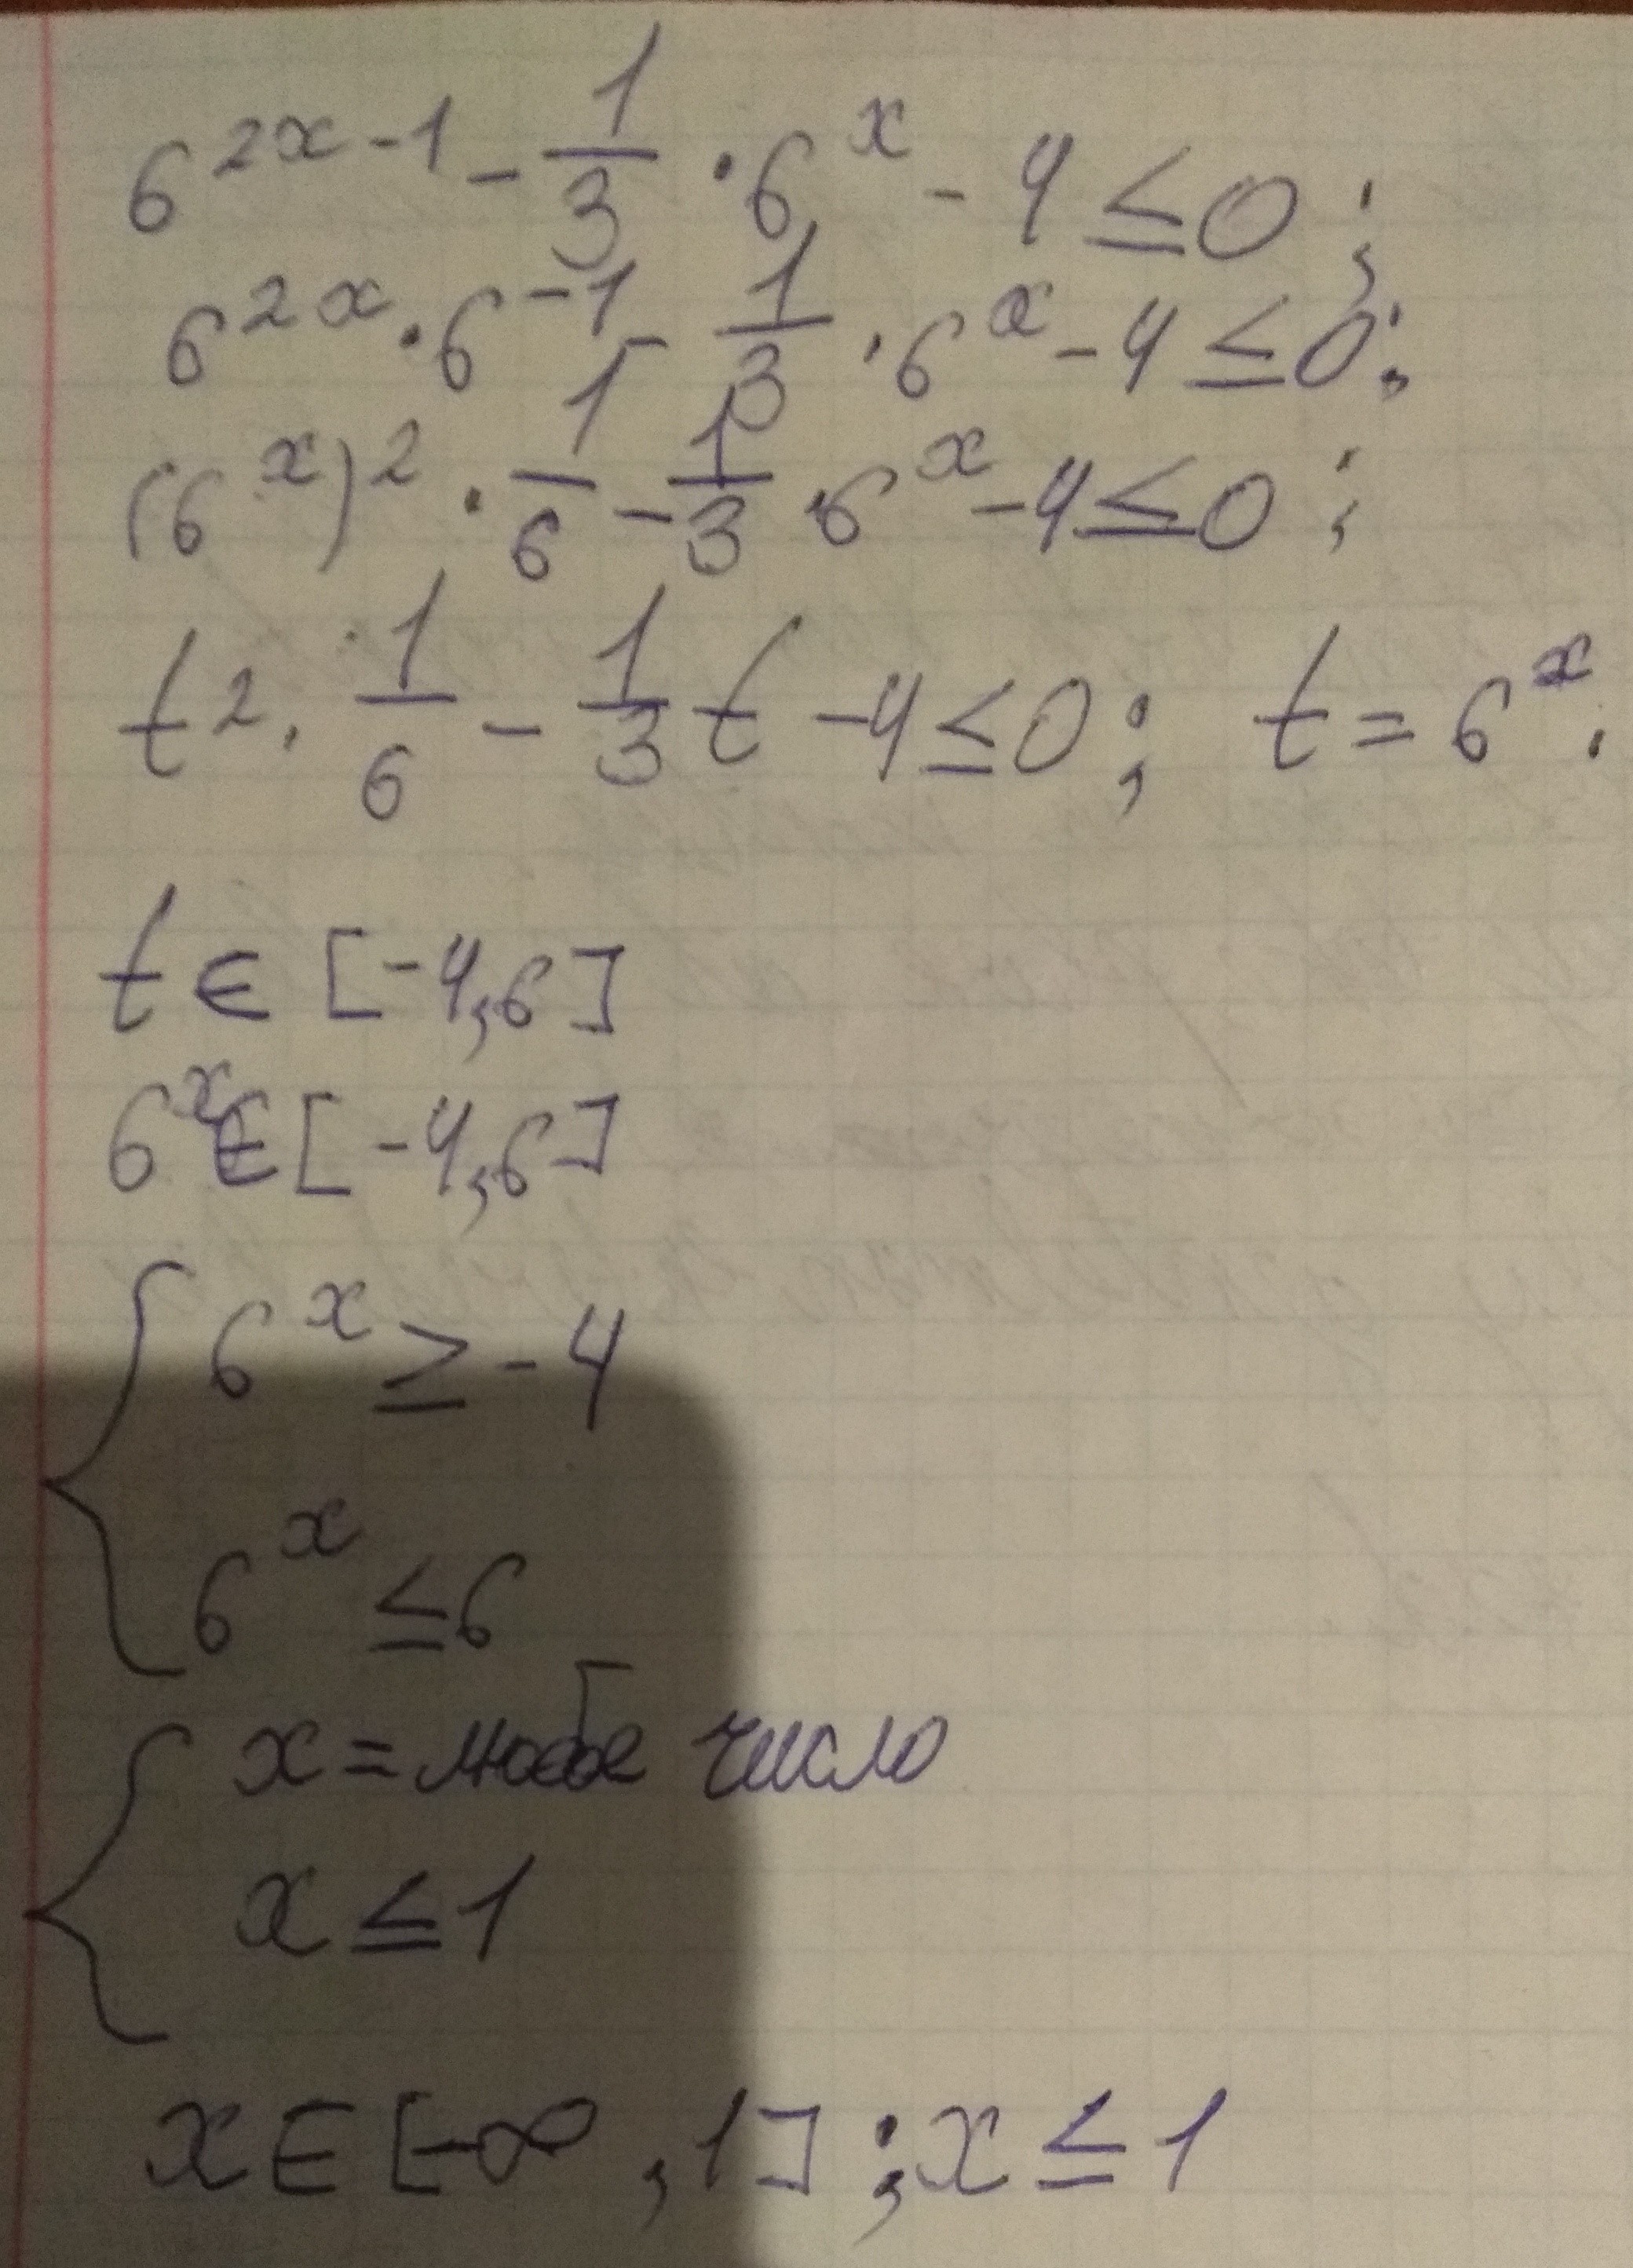 6^{2x-1} - \frac{1}{3} \cdot 6^x - 4 \leq 0;
6^{2x} \cdot 6^{-1} - \frac{1}{3} \cdot 6^x - 4 \leq 0;
(6^x)^2 \cdot \frac{1}{6} - \frac{1}{3} \cdot 6^x - 4 \leq 0;
t^2 \cdot \frac{1}{6} - \frac{1}{3} t - 4 \leq 0; t = 6^x.
t ∈ [-4,6]
6^x ∈ [-4,6]
6^x ≥ -4
6^x ≤ 6
x = любое число
x ≤ 1
x ∈ [-∞,1]; x ≤ 1